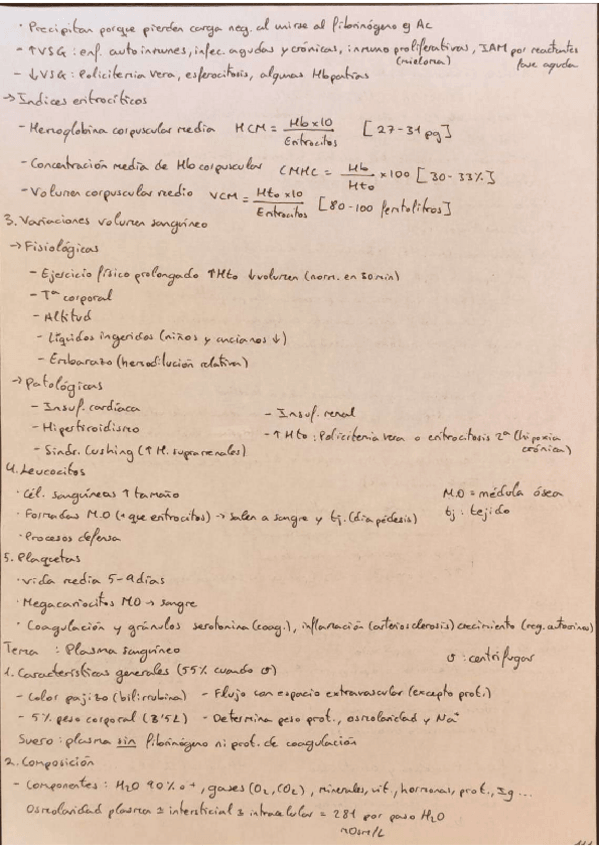 · Precipitan porque pierden carga neg. al unirse al fibrinógeno y Ac
- ↑VSG: enf. autoinmunes, infec. agudas y crónicas, inmunoproliferativas, IAM por reactantes
(mieloma) fase aguda
- ↓VSG: Policitemia vera, esferocitosis, algunas Hbpatías
→ Indices eritrocíticos
- Hemoglobina corpuscular media HCM = Hb x 10 / Eritrocitos [27-31 pg]
- Concentración media de Hb corpuscular CMHC = Hb / Hto x 100 [30-33%]
- Volumen corpuscular medio VCM = Hto x 10 / Eritrocitos [80-100 femtolitros]
3. Variaciones volumen sanguíneo
→ Fisiológicas
- Ejercicio físico prolongado ↑Hto ↓volumen (norm. en 30min)
- Tª corporal
- Altitud
- Líquidos ingeridos (niños y ancianos ↓)
- Embarazo (hemodilución relativa)
→ Patológicas
- Insuf. cardíaca - Insuf. renal
- Hipertiroidismo - ↑Hto: Policitemia vera o eritrocitosis 2ª (hipoxia
- Síndr. Cushing (↑ H. suprarrenales) crónica)
4. Leucocitos
· Cél. sanguíneas ↑ tamaño M.O = médula ósea
· Formadas M.O (+ que entrocitos) → salen a sangre y tj. (diapédesis) tj: tejido
· Procesos defensa
5. Plaquetas
· Vida media 5-9 días
· Megacariocitos MO → sangre
· Coagulación y gránulos serotonina (coag.), inflamación (arteriosclerosis) crecimiento (reg.
Tema : Plasma sanguíneo
σ: centrifugar
1. Características generales (55% cuando σ)
- Color pajizo (bilirrubina) - Flujo con espacio extravascular (excepto prot.)
- 5% peso corporal (3'5L) - Determina peso prot., osmolaridad y Na⁺
Suero: plasma sin fibrinógeno ni prot. de coagulación
2. Composición
- Componentes: H2O 90% o +, gases (O2, CO2), minerales, vit., hormonas, prot., Ig...
Osmolaridad plasma ≃ intersticial ≃ intracelular = 281 por paso H2O
mOsm/L